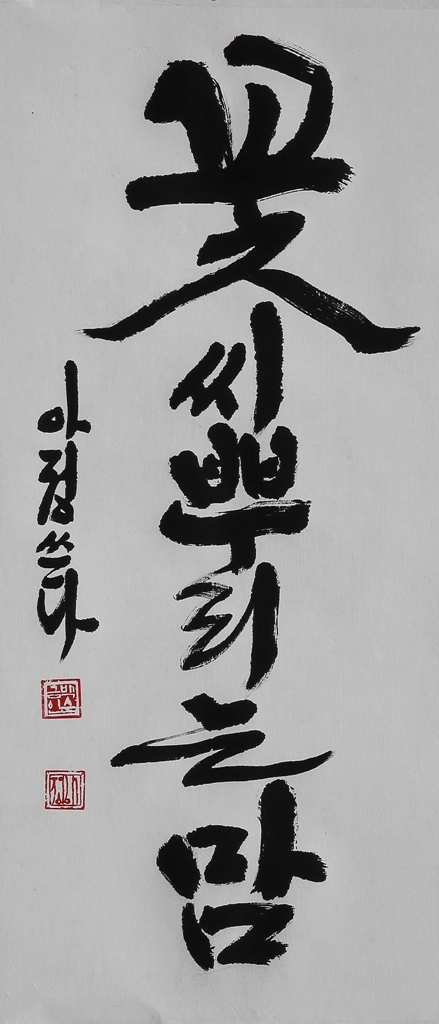 꽃씨뿌리는맘
아정쓰다